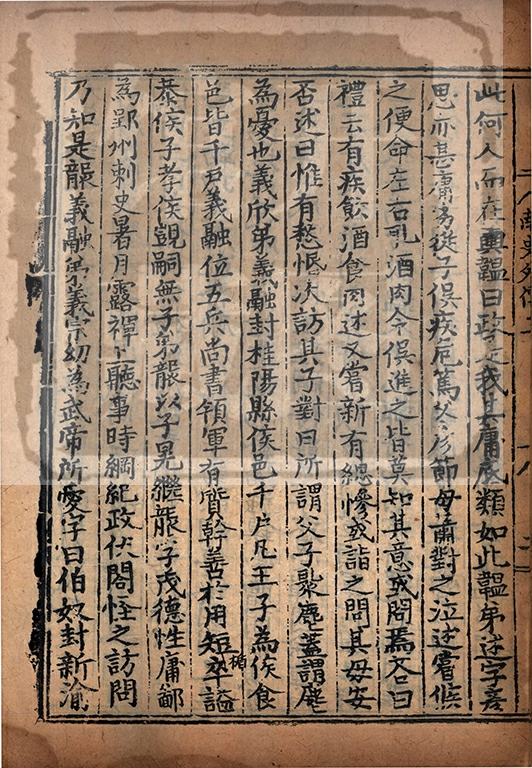 此何人而在輿韞曰政是我其庸底類如此韞弟述字彥
思亦甚庸劣從子俁疾危篤父彥節母蕭對之泣述嘗候
之便命左右取酒肉令俁進之皆莫知其意或問焉荅曰
禮云有疾飲酒食肉述又嘗新有緦慘或詣之問其母安
否述曰惟有愁惛次訪其子對曰所謂父子聚麀蓋謂麀
為憂也義欣弟義融封桂陽縣侯邑千戶凡王子為侯食
邑皆千戶義融位五兵尚書領軍有質幹善於用短楯卒謚
恭侯子孝侯覬嗣無子弟襲以子晃繼襲字茂德性庸鄙
為郢州刺史暑月露褌上聽事時綱紀政伏閤怪之訪問
乃知是襲義融弟義宗幼為武帝所愛字曰伯奴封新渝